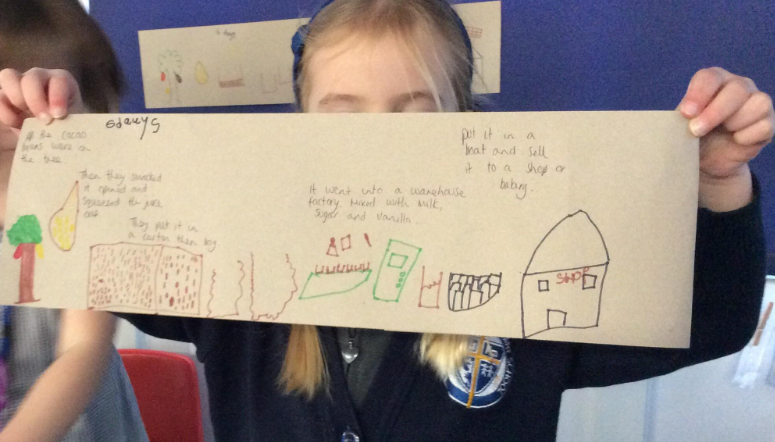 6 days
the cacao
beans were on
the tree.
Then they smacked
it opened and
squeezed the juice
out
They put it in
a carton then bag
It went into a warehouse
factory. Mixed with milk,
sugar and vanilla.
put it in a
boat and sell
it to a shop or
SHOP